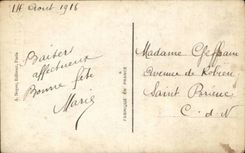 14 Aout 1916
Baiser
affectueux
Bonne fête
Marie
A. Noyer, Editeur, Paris
FABRIQUÉ EN FRANCE
Madame
Avenue de Robien
Saint Brieuc
C-d-N